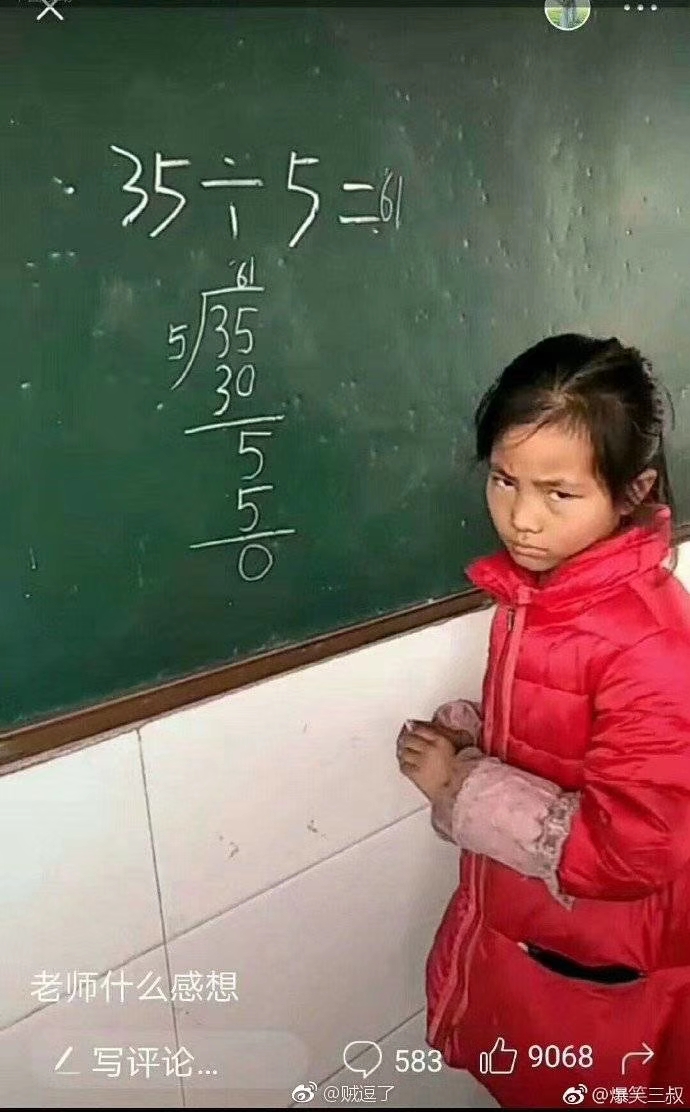 35÷5=61
61
5 35
30
5
5
0
老师什么感想
写评论...
583
9068
@贼逗了
@爆笑三叔